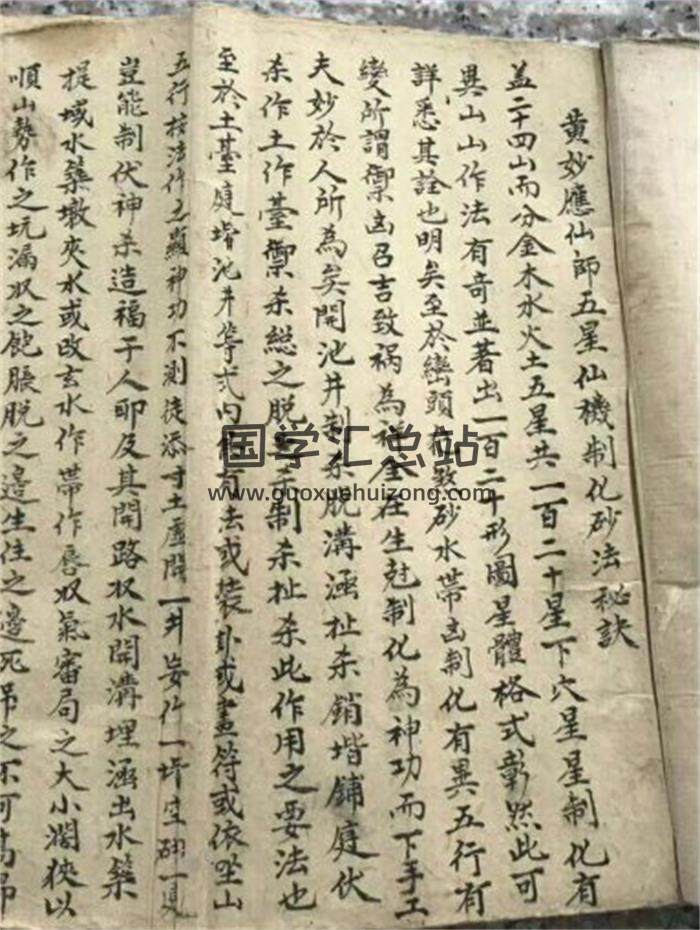 黄妙應仙師五星仙機制化砂法秘訣
盖二十四山而分金木水火土五星共一百二十星下穴星星制化有
異山山作法有奇並著出一百二十形圖星體格式彰然此可
詳悉其詮也明矣至於巒頭 砂水帶凶制化有異五行有
變所謂禦凶召吉致禍為祥全在生尅制化為神功而下手工
夫妙於人所為矣開池井制杀脱溝涵扯杀銷堦鋪庭伏
杀作土作臺禦杀総之脱 杀制杀扯杀此作用之要法也
至於土臺庭堦池井等式内 有法或装卦或畫符或依坐山
五行按法作之顯神功不測徒添寸土虚開一井妄作一坪 砌一
豈能制伏神杀造福于人耶及其開路収水開溝埋涵出水築
提域水築墩夾水或改玄水作帶作唇収氣審局之大小濶狹以
順山勢作之坑漏収之飽脹脱之邊生注之邊死吊之不可高吊
国学汇总站
www.guoxuehuizong.com